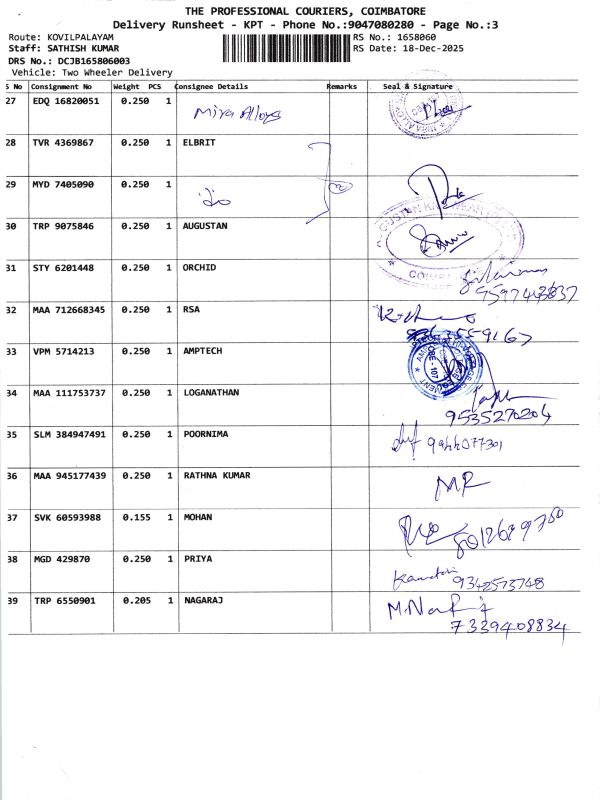 THE PROFESSIONAL COURIERS, COIMBATORE
Delivery Runsheet - KPT - Phone No.:9047080280 - Page No.:3
Route: KOVILPALAYAM RS No.: 1658060
Staff: SATHISH KUMAR RS Date: 18-Dec-2025
DRS No.: DCJB165806003
Vehicle: Two Wheeler Delivery
S No Consignment No Weight PCS Consignee Details Remarks Seal & Signature
27 EDQ 16820051 0.250 1 Mira Alloys
28 TVR 4369867 0.250 1 ELBRIT
29 MYD 7405090 0.250 1
30 TRP 9075846 0.250 1 AUGUSTAN
31 STY 6201448 0.250 1 ORCHID
32 MAA 712668345 0.250 1 RSA
33 VPM 5714213 0.250 1 AMPTECH
34 MAA 111753737 0.250 1 LOGANATHAN
9535270204
35 SLM 384947491 0.250 1 POORNIMA 9944077301
36 MAA 945177439 0.250 1 RATHNA KUMAR MR
37 SVK 60593988 0.155 1 MOHAN
38 MGD 429870 0.250 1 PRIYA
9342573748
39 TRP 6550901 0.205 1 NAGARAJ
7339408834